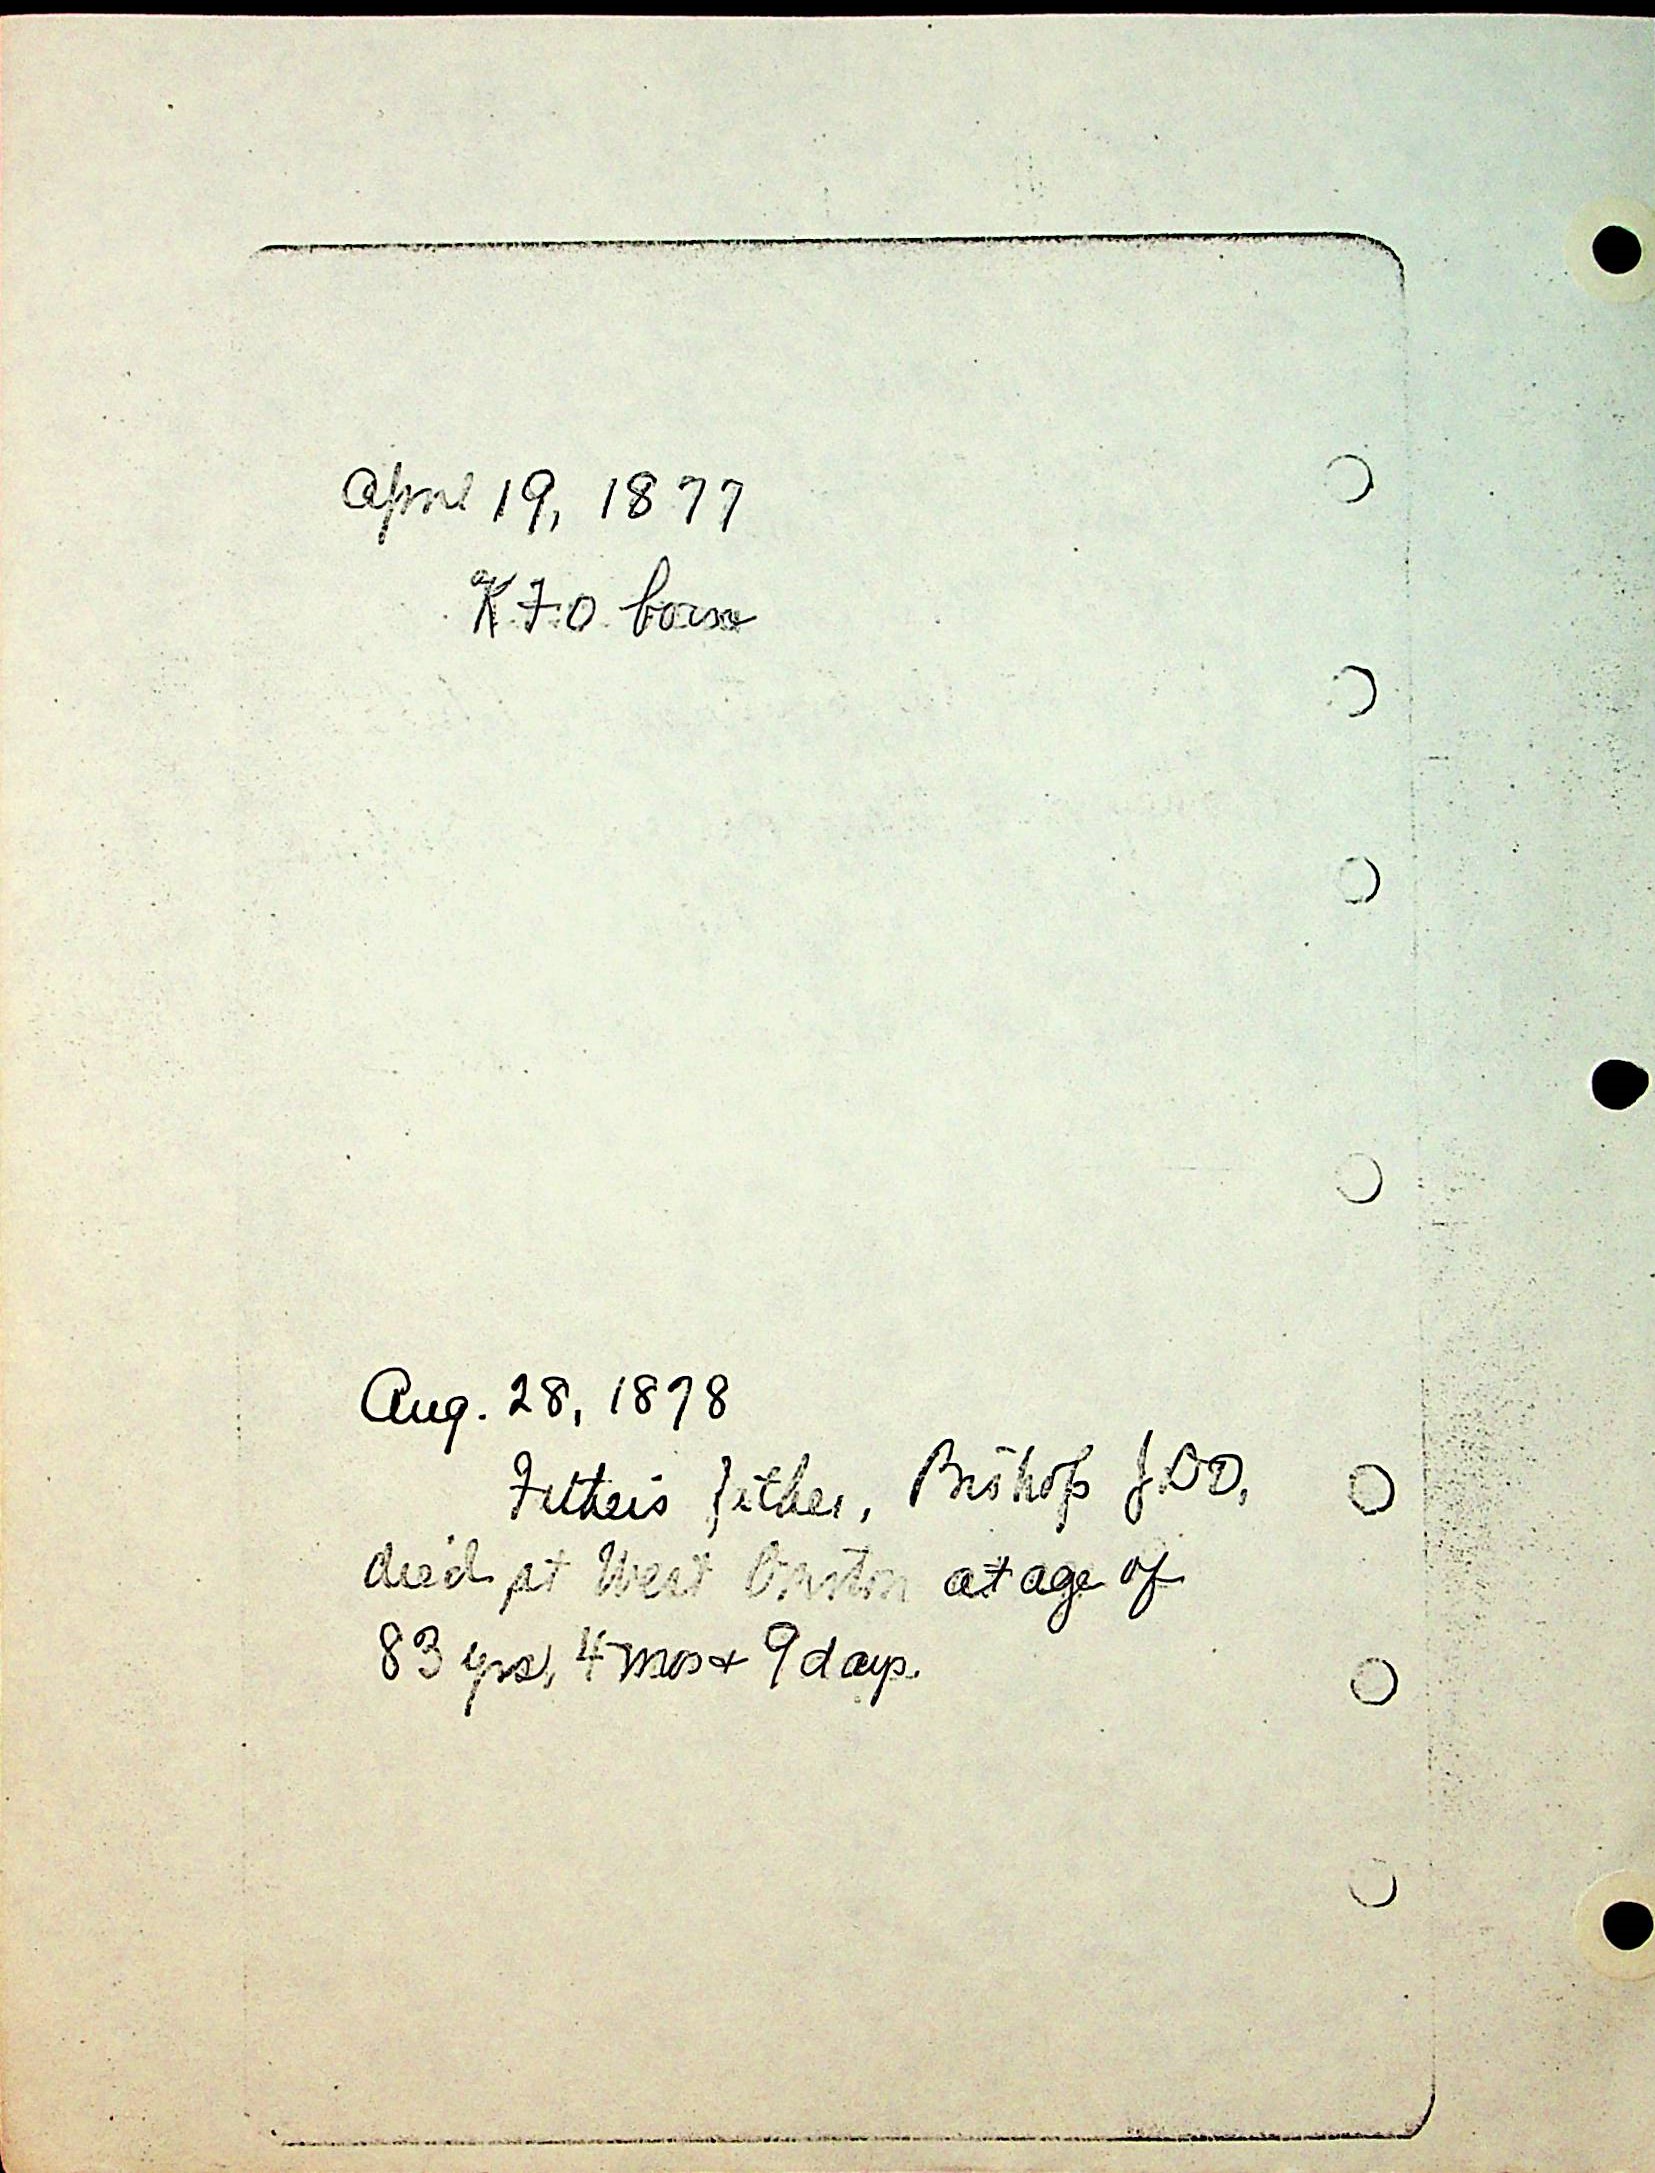 April 19, 1877
KFO born
Aug. 28, 1878
Father's father, Bishop JDD,
died at West at age of
83 yrs, 4 mos + 9 days.